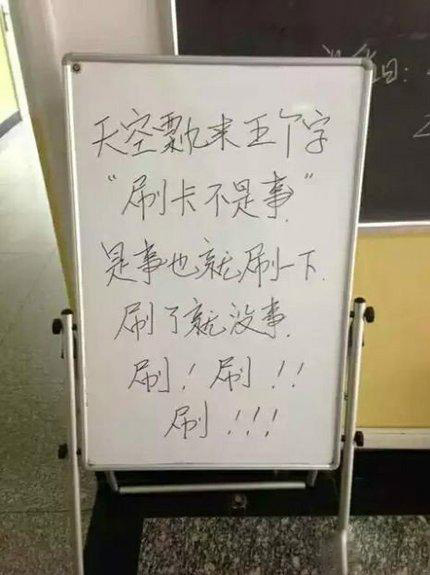 天空飘来五个字
“刷卡不是事”
是事也就刷一下.
刷了就没事.
刷！刷！！
刷！！！